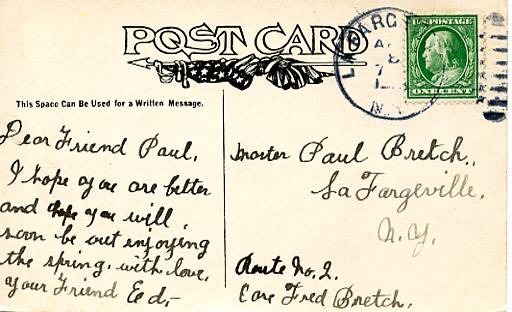 POST CARD
U.S. POSTAGE
ONE CENT
N.Y.
This Space Can Be Used for a Written Message.
Dear Friend Paul,
I hope you are better
and hope you will
soon be out enjoying
the spring. with love.
your Friend Ed.-
Master Paul Bretch.,
La Fargeville.
N.Y.
Route No. 2.
Care Fred Bretch.